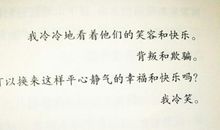 我冷冷地看着他们的笑容和快乐。
背叛和欺骗。
可以换来这样平心静气的幸福和快乐吗？
我冷笑。